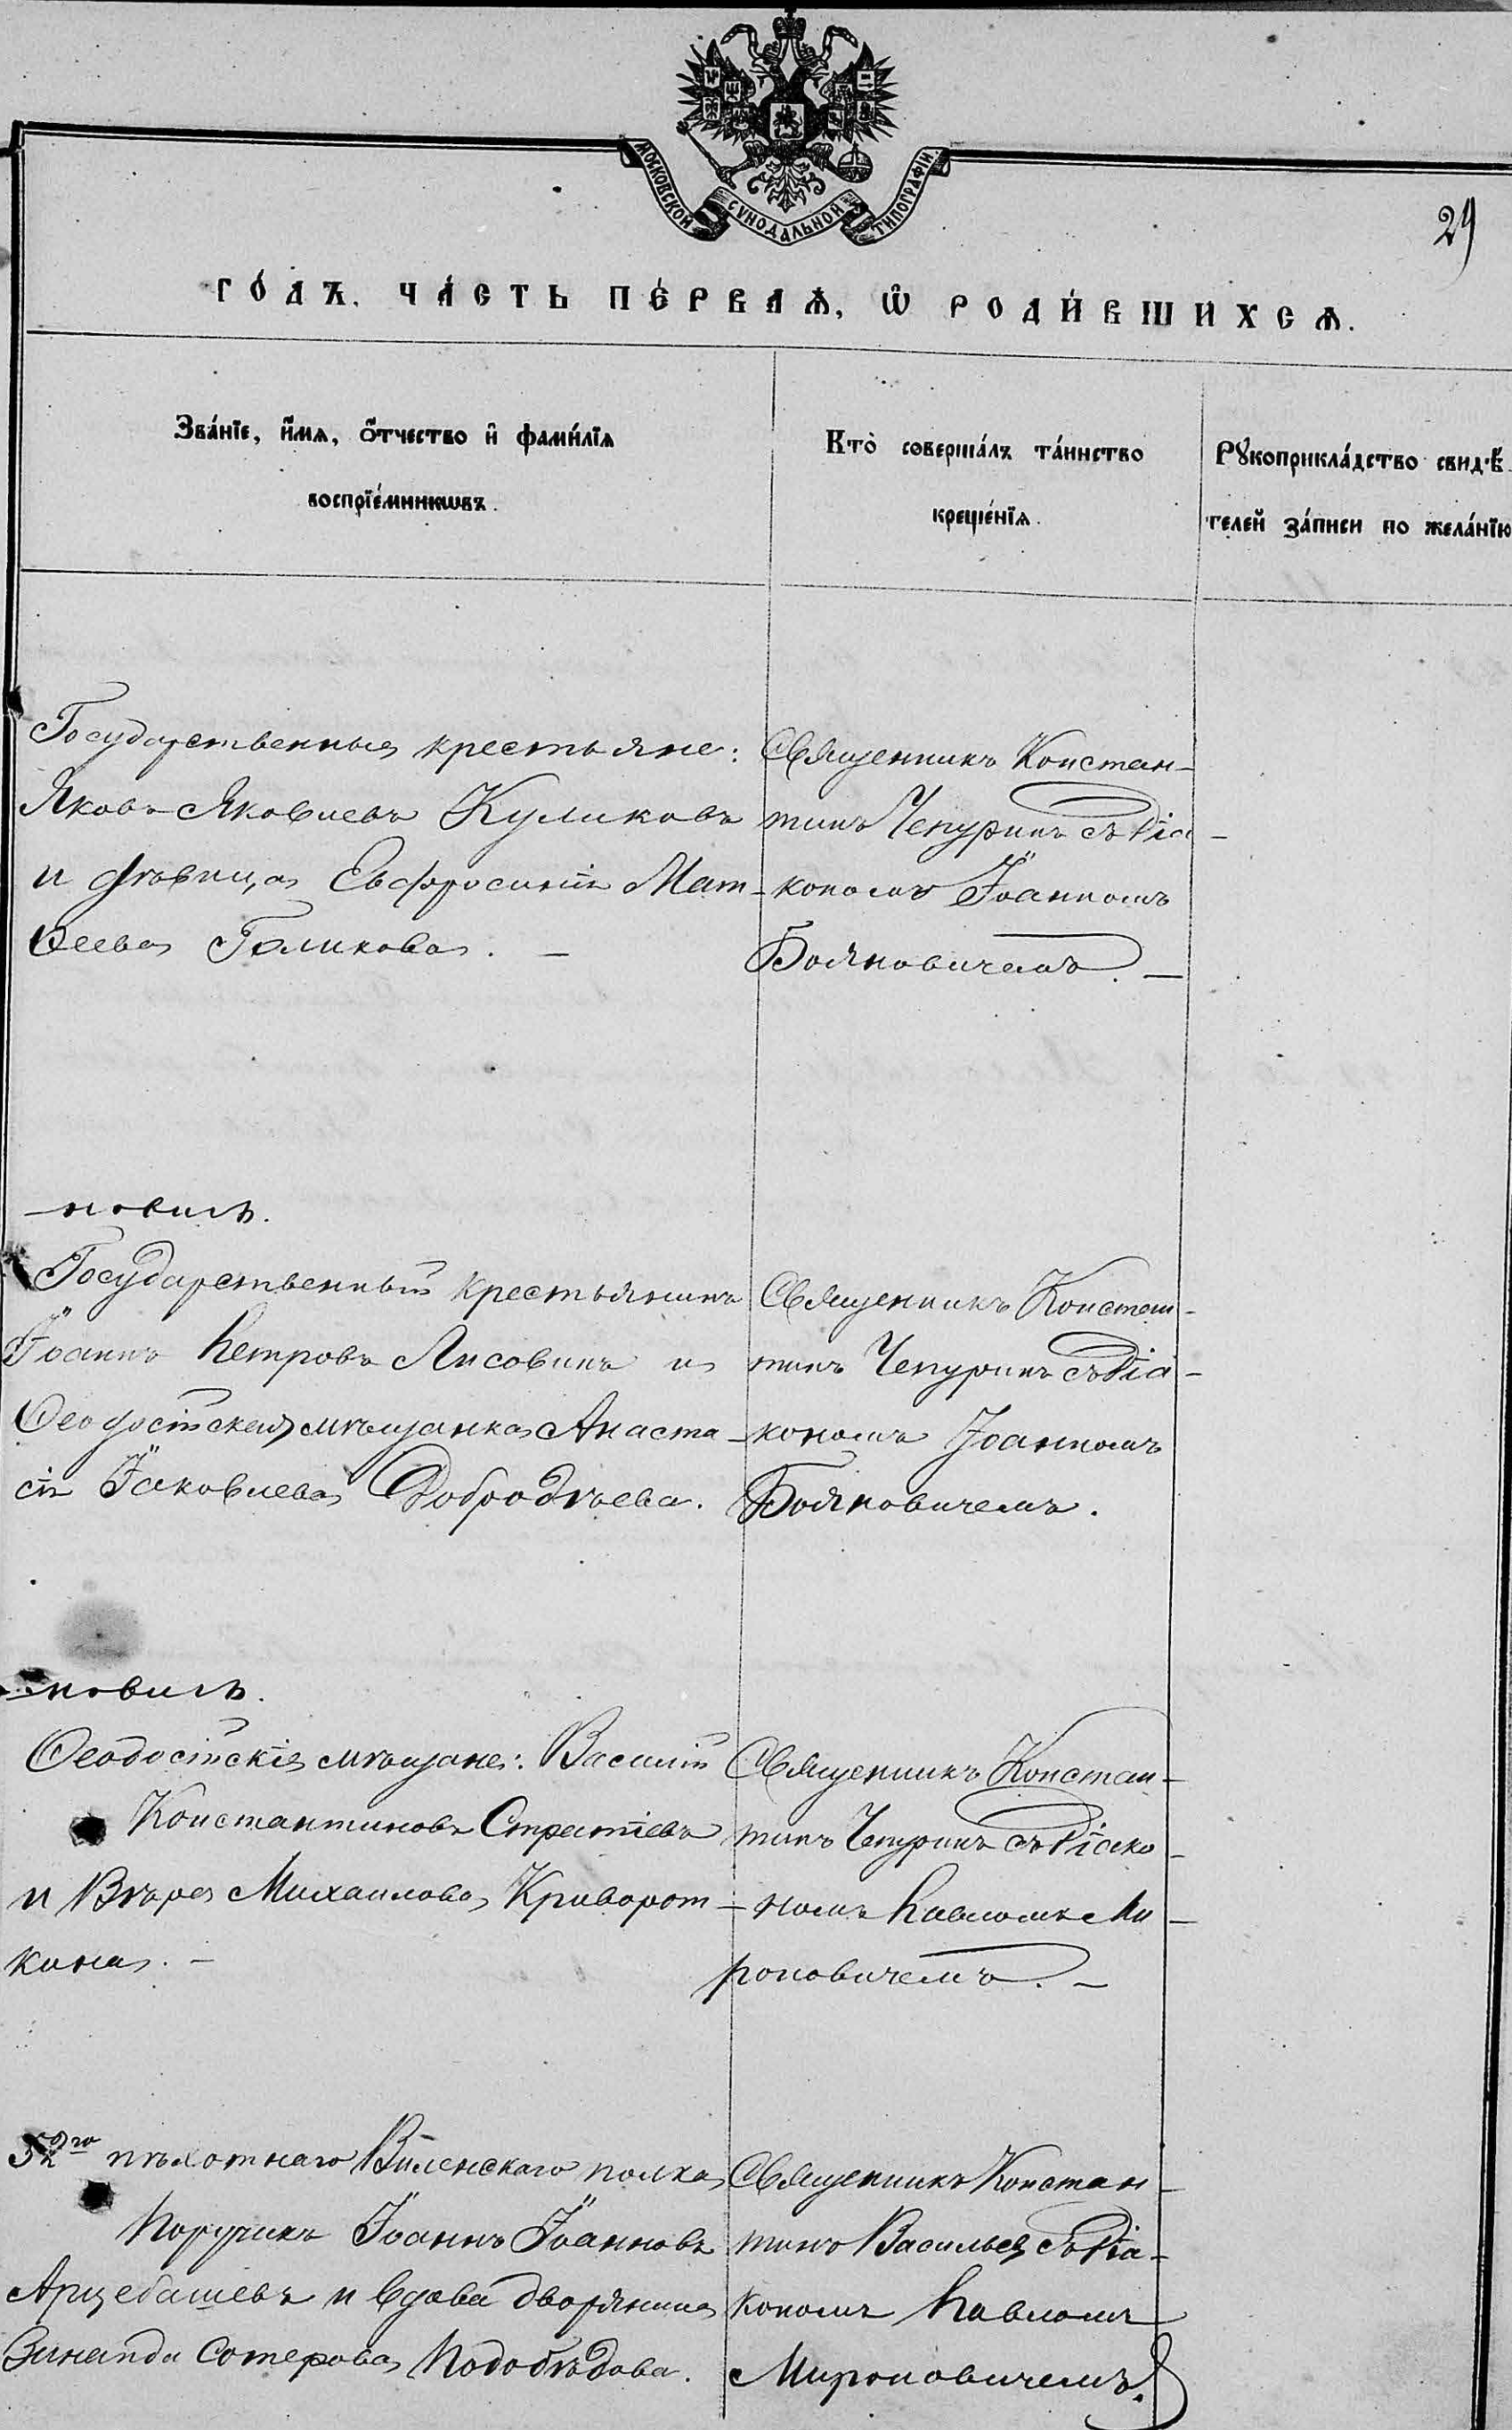 МОСКОВСКОЙ СѴНОДАЛЬНОЙ ТИПОГРАФІИ.
29
ГО́ДЪ. ЧА́СТЬ ПЕ́РВАѦ, Ѡ҆ РОДИ́ВШИХСѦ.
Зва́нїе, и҆́мѧ, ѻ҆́тчество и҆ фами́лїѧ
воспрїе́мникѡвъ.
Кто̀ соверша́лъ та́инство
креще́нїѧ.
Рꙋкоприкла́дство свидѣ́-
телей за́писи по жела́нїю
Государственные крестьяне:
Яковъ Яковлевъ Куликовъ
и дѣвица Евфросинія Мат-
ѳеева Голикова. —
Священникъ Констан-
тинъ Чепуринъ съ діа-
кономъ Іоанномъ
Бояновичемъ. —
-новилъ.
Государственный крестьянинъ
Іоаннъ Петровъ Лисовинъ и
Ѳеодосійская мѣщанка Анаста-
сія Іаковлева Добродѣева.
Священникъ Констан-
тинъ Чепуринъ съ діа-
кономъ Іоанномъ
Бояновичемъ.
-новилъ.
Ѳеодосійскіе мѣщане: Василій
Константиновъ Стратіевъ
и Вѣра Михаилова Криворот-
кина. —
Священникъ Констан-
тинъ Чепуринъ съ діако-
номъ Павломъ Ми-
роновичемъ. —
52го пѣхотнаго Виленскаго полка
Поручикъ Іоаннъ Іоанновъ
Арцебашевъ и вдова дворянина
Зинаида Сотерова Подобѣдова.
Священникъ Констан-
тинъ Васильев съ діа-
кономъ Павломъ
Мироновичемъ.